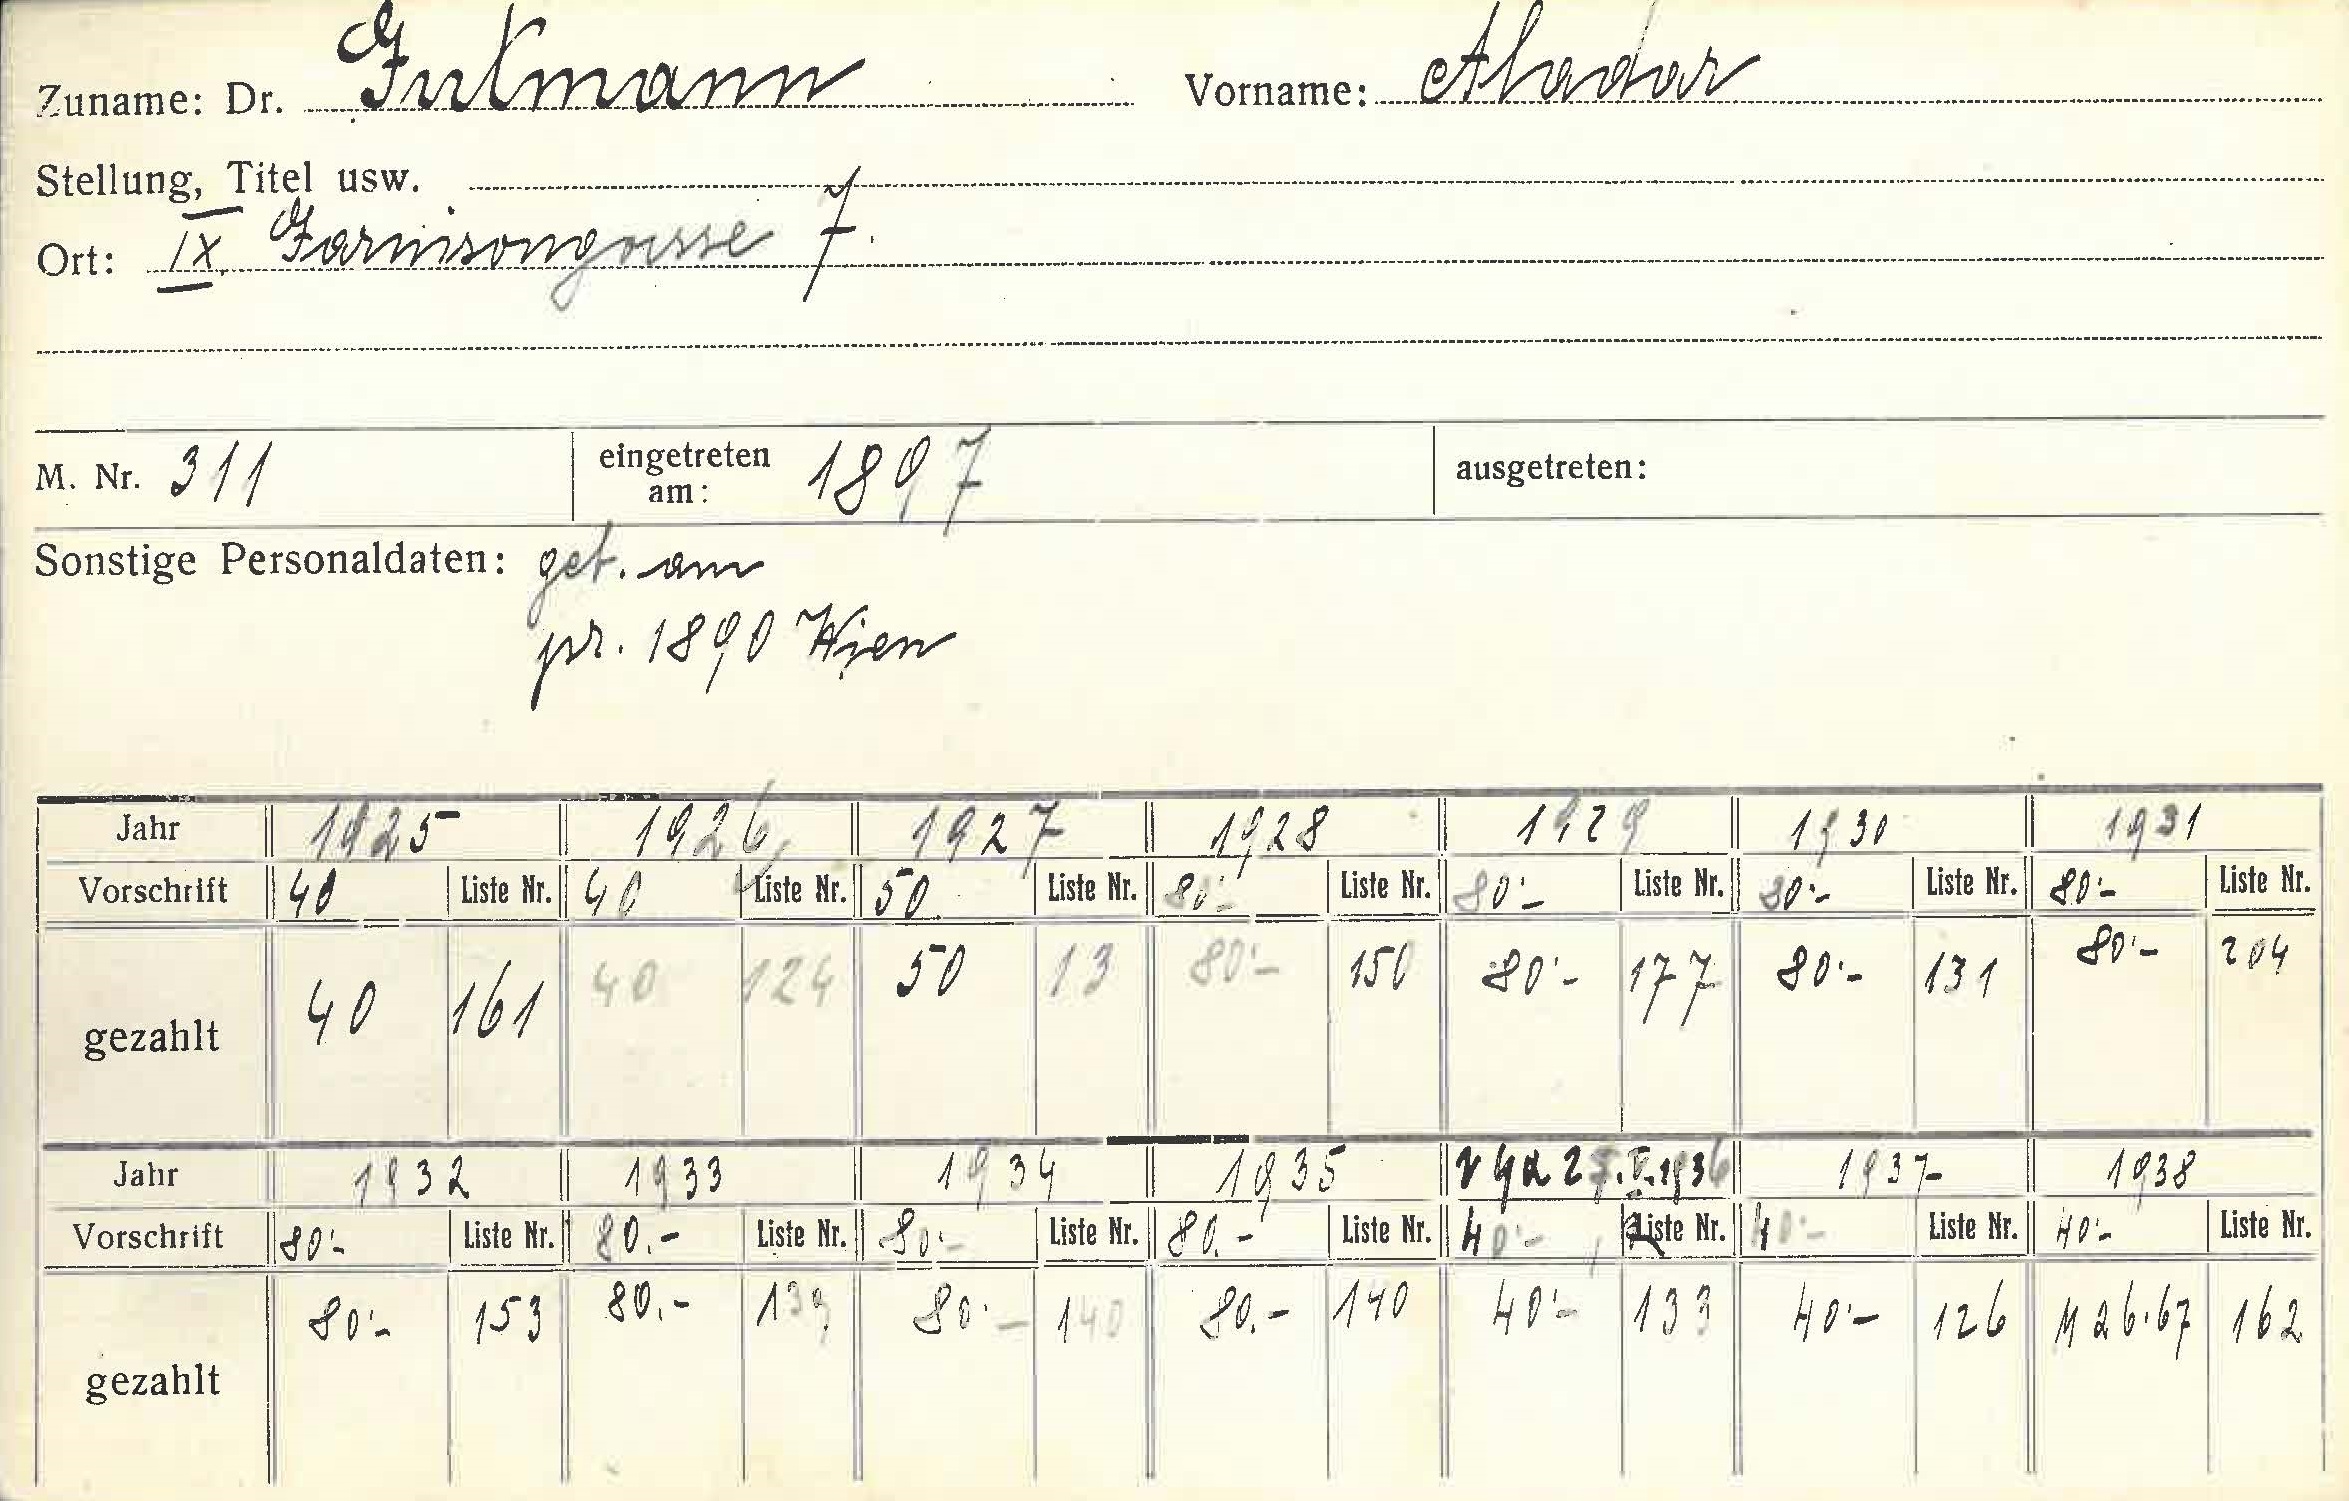 Zuname: Dr. Gutmann Vorname: Aladar
Stellung, Titel usw.
Ort: IX. Garnisongasse 7.
M. Nr. 311 eingetreten am: 1897 ausgetreten:
Sonstige Personaldaten: geb. am
pr. 1890 Wien
Jahr 1925 1926 1927 1928 1929 1930 1931
Vorschrift 40 Liste Nr. 40 Liste Nr. 50 Liste Nr. 80'- Liste Nr. 80'- Liste Nr. 80'- Liste Nr. 80'- Liste Nr.
gezahlt 40 161 40 124 50 13 80'- 150 80'- 177 80'- 131 80'- 204
Jahr 1932 1933 1934 1935 1936 1937 1938
Vorschrift 80'- Liste Nr. 80.- Liste Nr. 80'- Liste Nr. 80.- Liste Nr. 40'- Liste Nr. 40'- Liste Nr. 40'- Liste Nr.
gezahlt 80'- 153 80.- 139 80'- 140 80.- 140 40'- 133 40'- 126 M 26.67 162